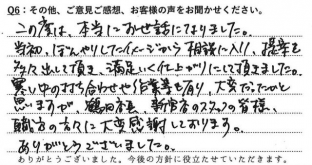 Q6：その他、ご意見ご感想、お客様の声をお聞かせください。
この度は、本当にお世話になりました。
当初、ぼんやりしたイメージから相談に入り、提案を
多々出して頂き、満足いく仕上がりにして頂きました。
暑い中の打ち合わせや作業等も有り、大変だったかと
思いますが、鶴田店長、新宮店のスタッフの皆様、
職方の方々に大変感謝しております。
ありがとうございました。
ありがとうございました。今後の方針に役立たせていただきます。